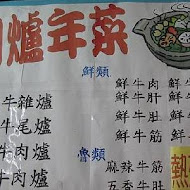 爐年菜
鮮類
牛雜爐
牛尾爐
牛肉爐
牛肉爐
鮮牛肉
鮮牛肚
鮮牛肝
鮮牛筋
滷類
麻辣牛筋
五香牛肚